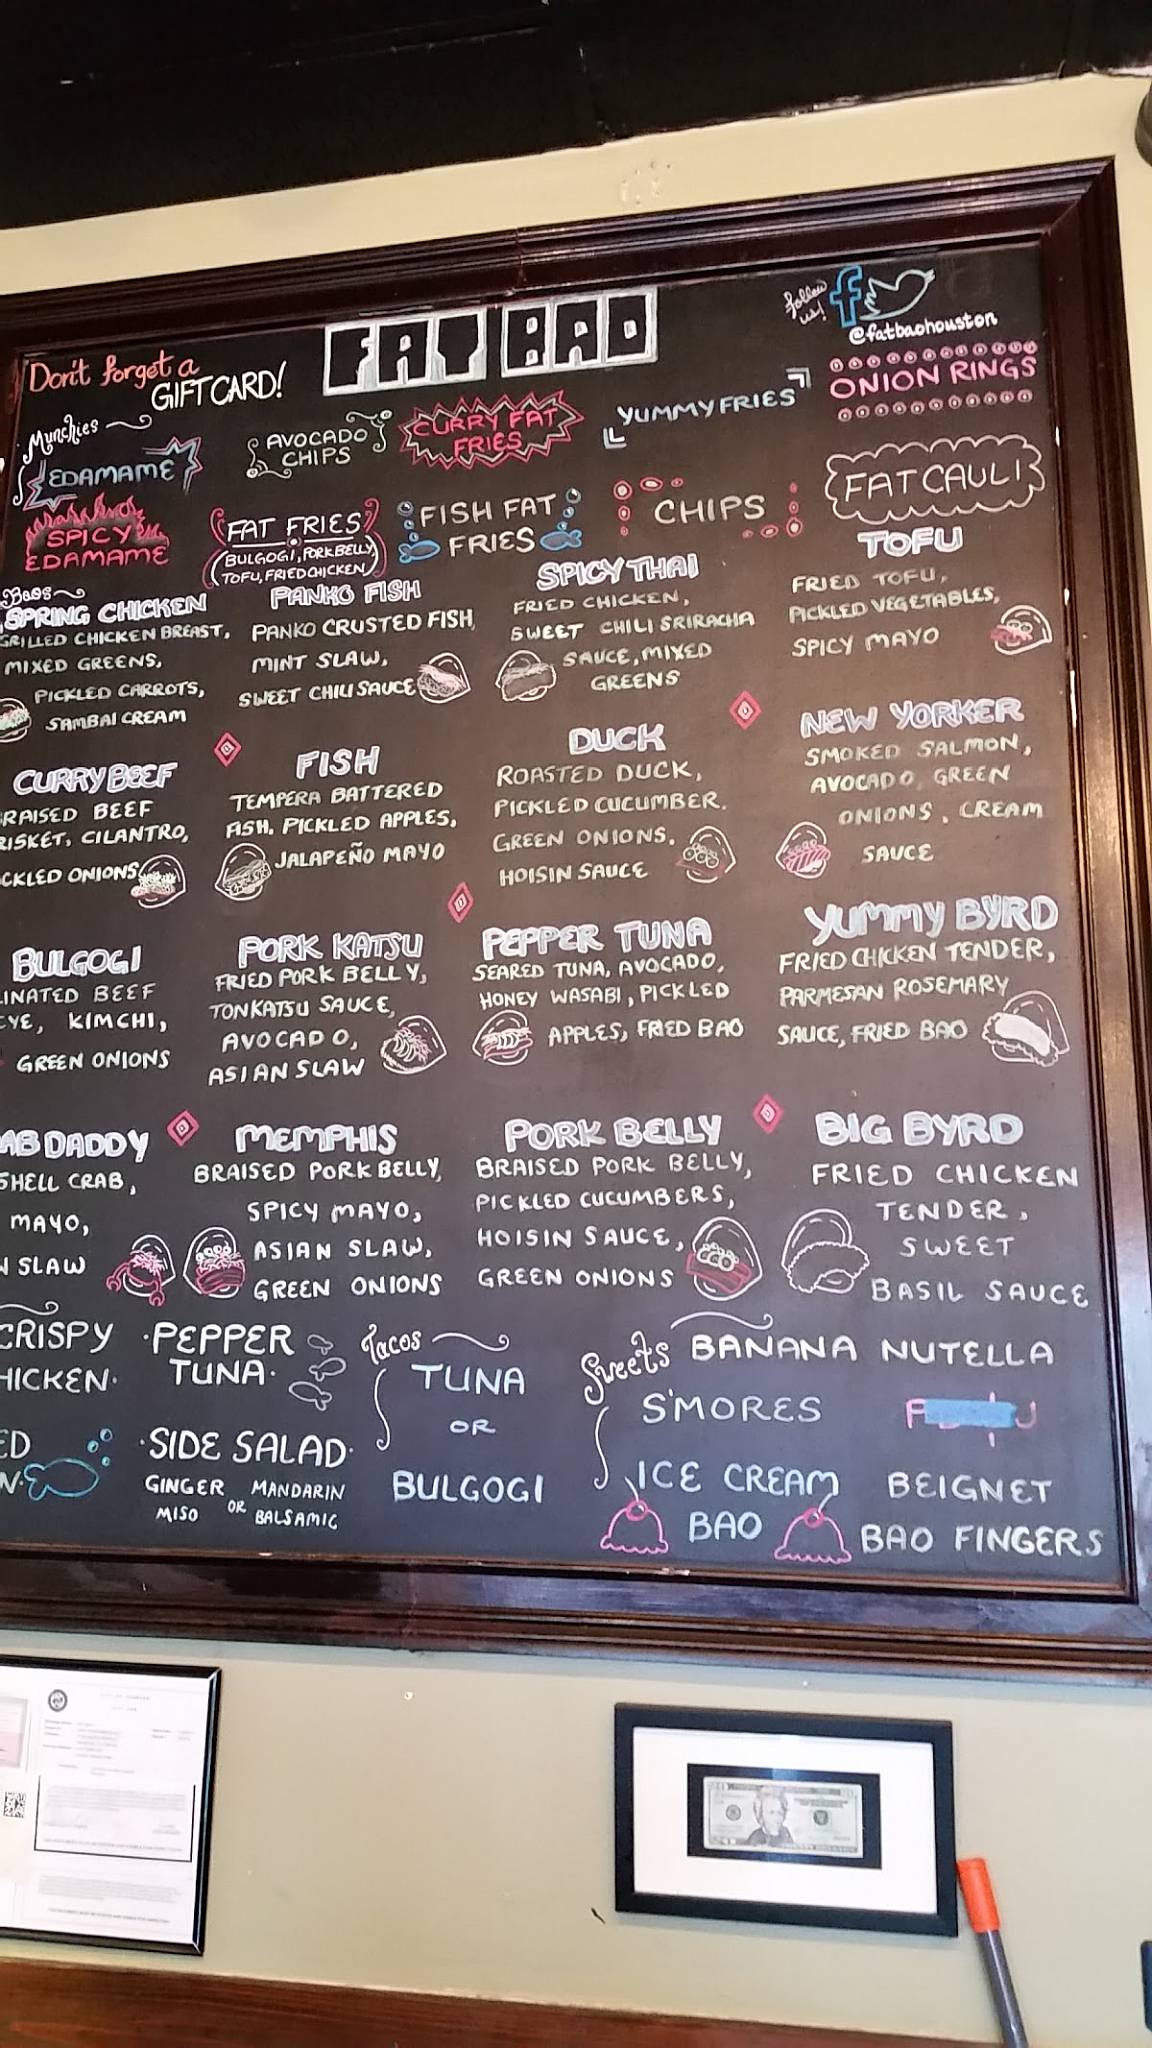 Don't forget a
GIFT CARD!
FAT BAO
follow us!
@fatbaohouston
Munchies
EDAMAME
AVOCADO
CHIPS
CURRY FAT
FRIES
YUMMY FRIES
ONION RINGS
SPICY
EDAMAME
FAT FRIES
(BULGOGI, PORK BELLY,
TOFU, FRIED CHICKEN)
FISH FAT
FRIES
CHIPS
FAT CAULI
Baos
SPRING CHICKEN
GRILLED CHICKEN BREAST,
MIXED GREENS,
PICKLED CARROTS,
SAMBAI CREAM
PANKO FISH
PANKO CRUSTED FISH,
MINT SLAW,
SWEET CHILI SAUCE
SPICY THAI
FRIED CHICKEN,
SWEET CHILI SRIRACHA
SAUCE, MIXED
GREENS
TOFU
FRIED TOFU,
PICKLED VEGETABLES,
SPICY MAYO
CURRY BEEF
RAISED BEEF
RISKET, CILANTRO,
CKLED ONIONS
FISH
TEMPERA BATTERED
FISH, PICKLED APPLES,
JALAPEÑO MAYO
DUCK
ROASTED DUCK,
PICKLED CUCUMBER.
GREEN ONIONS.
HOISIN SAUCE
NEW YORKER
SMOKED SALMON,
AVOCADO, GREEN
ONIONS, CREAM
SAUCE
BULGOGI
INATED BEEF
EYE, KIMCHI,
GREEN ONIONS
PORK KATSU
FRIED PORK BELLY,
TONKATSU SAUCE,
AVOCADO,
ASIAN SLAW
PEPPER TUNA
SEARED TUNA, AVOCADO,
HONEY WASABI, PICKLED
APPLES, FRIED BAO
YUMMY BYRD
FRIED CHICKEN TENDER,
PARMESAN ROSEMARY
SAUCE, FRIED BAO
AB DADDY
SHELL CRAB,
MAYO,
N SLAW
MEMPHIS
BRAISED PORK BELLY,
SPICY MAYO,
ASIAN SLAW,
GREEN ONIONS
PORK BELLY
BRAISED PORK BELLY,
PICKLED CUCUMBERS,
HOISIN SAUCE,
GREEN ONIONS
BIG BYRD
FRIED CHICKEN
TENDER,
SWEET
BASIL SAUCE
CRISPY
HICKEN·
·PEPPER
TUNA·
ED
N·
·SIDE SALAD·
GINGER MANDARIN
MISO OR BALSAMIC
Tacos
TUNA
OR
BULGOGI
Sweets
BANANA NUTELLA
S'MORES
ICE CREAM
BAO
BEIGNET
BAO FINGERS